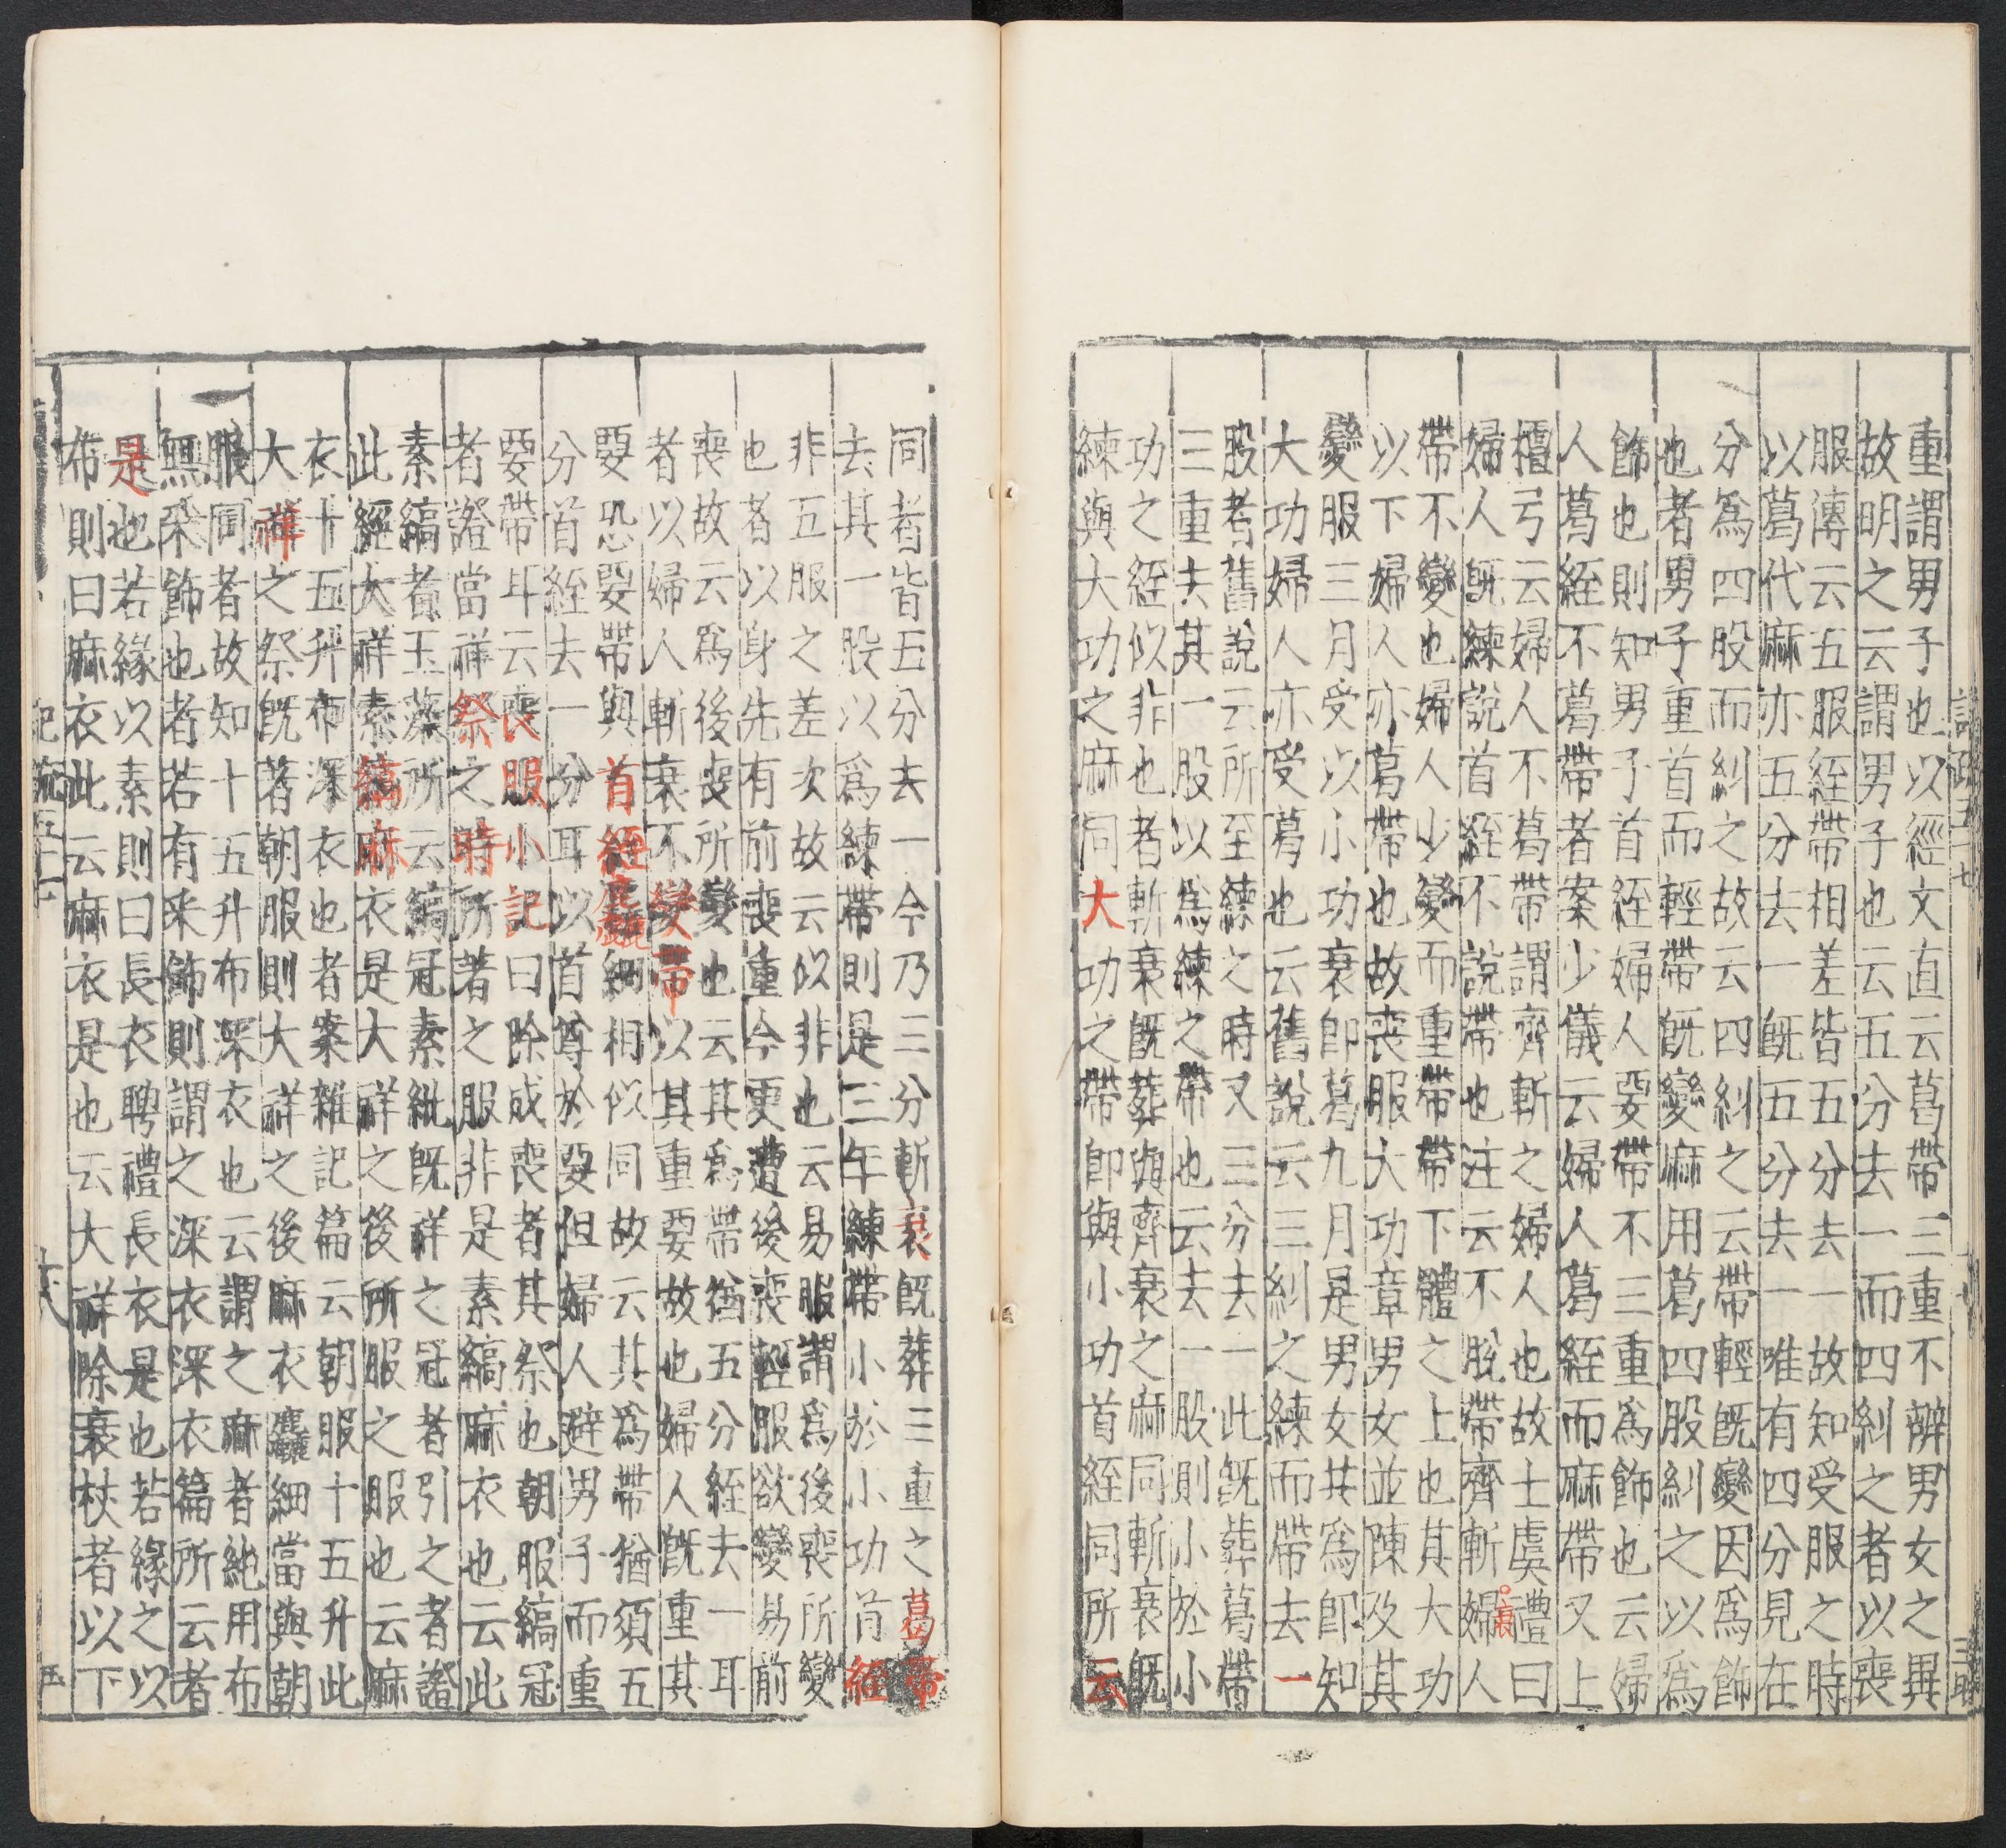 重謂男子也以經文直云葛帶三重不辨男女之異
故明之云謂男子也云五分去一而四糾之者以喪
服傳云五服絰帶相差皆五分去一故知受服之時
以葛代麻亦五分去一既五分去一唯有四分見在
分爲四股而糾之故云四糾之云帶輕既變因爲飾
也者男子重首而輕帶既變麻用葛四股糾之以爲
飾也則知男子首絰婦人要帶不三重爲飾也云婦
人葛絰不葛帶者案少儀云婦人葛絰而麻帶又上
檀弓云婦人不葛帶謂齊斬之婦人也故士虞禮曰
婦人既練說首絰不說帶也注云不脫帶齊斬婦人
帶不變也婦人少變而重帶帶下體之上也其大功
以下婦人亦葛帶也故喪服大功章男女並陳及其
變服三月受以小功衰即葛九月是男女共爲即知
大功婦人亦受葛也云舊說云三糾之練而帶去一
股者舊說云所至練之時又三分去一此既葬葛帶
三重去其一股以爲練之帶也云去一股則小於小
功之絰似非也者斬衰既葬與齊衰之麻同斬衰既
練與大功之麻同大功之帶即與小功首絰同所云
同者皆五分去一今乃三分斬衰既葬三重之葛帶
去其一股以爲練帶則是三年練帶小於小功首絰
非五服之差次故云似非也云易服謂爲後喪所變
也者以身先有前喪重今更遭後喪輕服欲變易前
喪故云爲後喪所變也云其爲帶猶五分絰去一耳
者以婦人斬衰不變帶以其重要故也婦人既重其
要恐要帶與首絰麤細相似同故云其爲帶猶須五
分首絰去一分耳以首尊於要但婦人避男子而重
要帶耳云喪服小記曰除成喪者其祭也朝服縞冠
者證當祥祭之時所著之服非是素縞麻衣也云此
素縞者玉藻所云縞冠素紕既祥之冠者引之者證
此經大祥素縞麻衣是大祥之後所服之服也云麻
衣十五升布深衣也者案雜記篇云朝服十五升此
大祥之祭既著朝服則大祥之後麻衣麤細當與朝
服同者故知十五升布深衣也云謂之麻者純用布
無采飾也者若有采飾則謂之深衣深衣篇所云者
是也若緣以素則曰長衣聘禮長衣是也若緣之以
布則曰麻衣此云麻衣是也云大祥除衰杖者以下